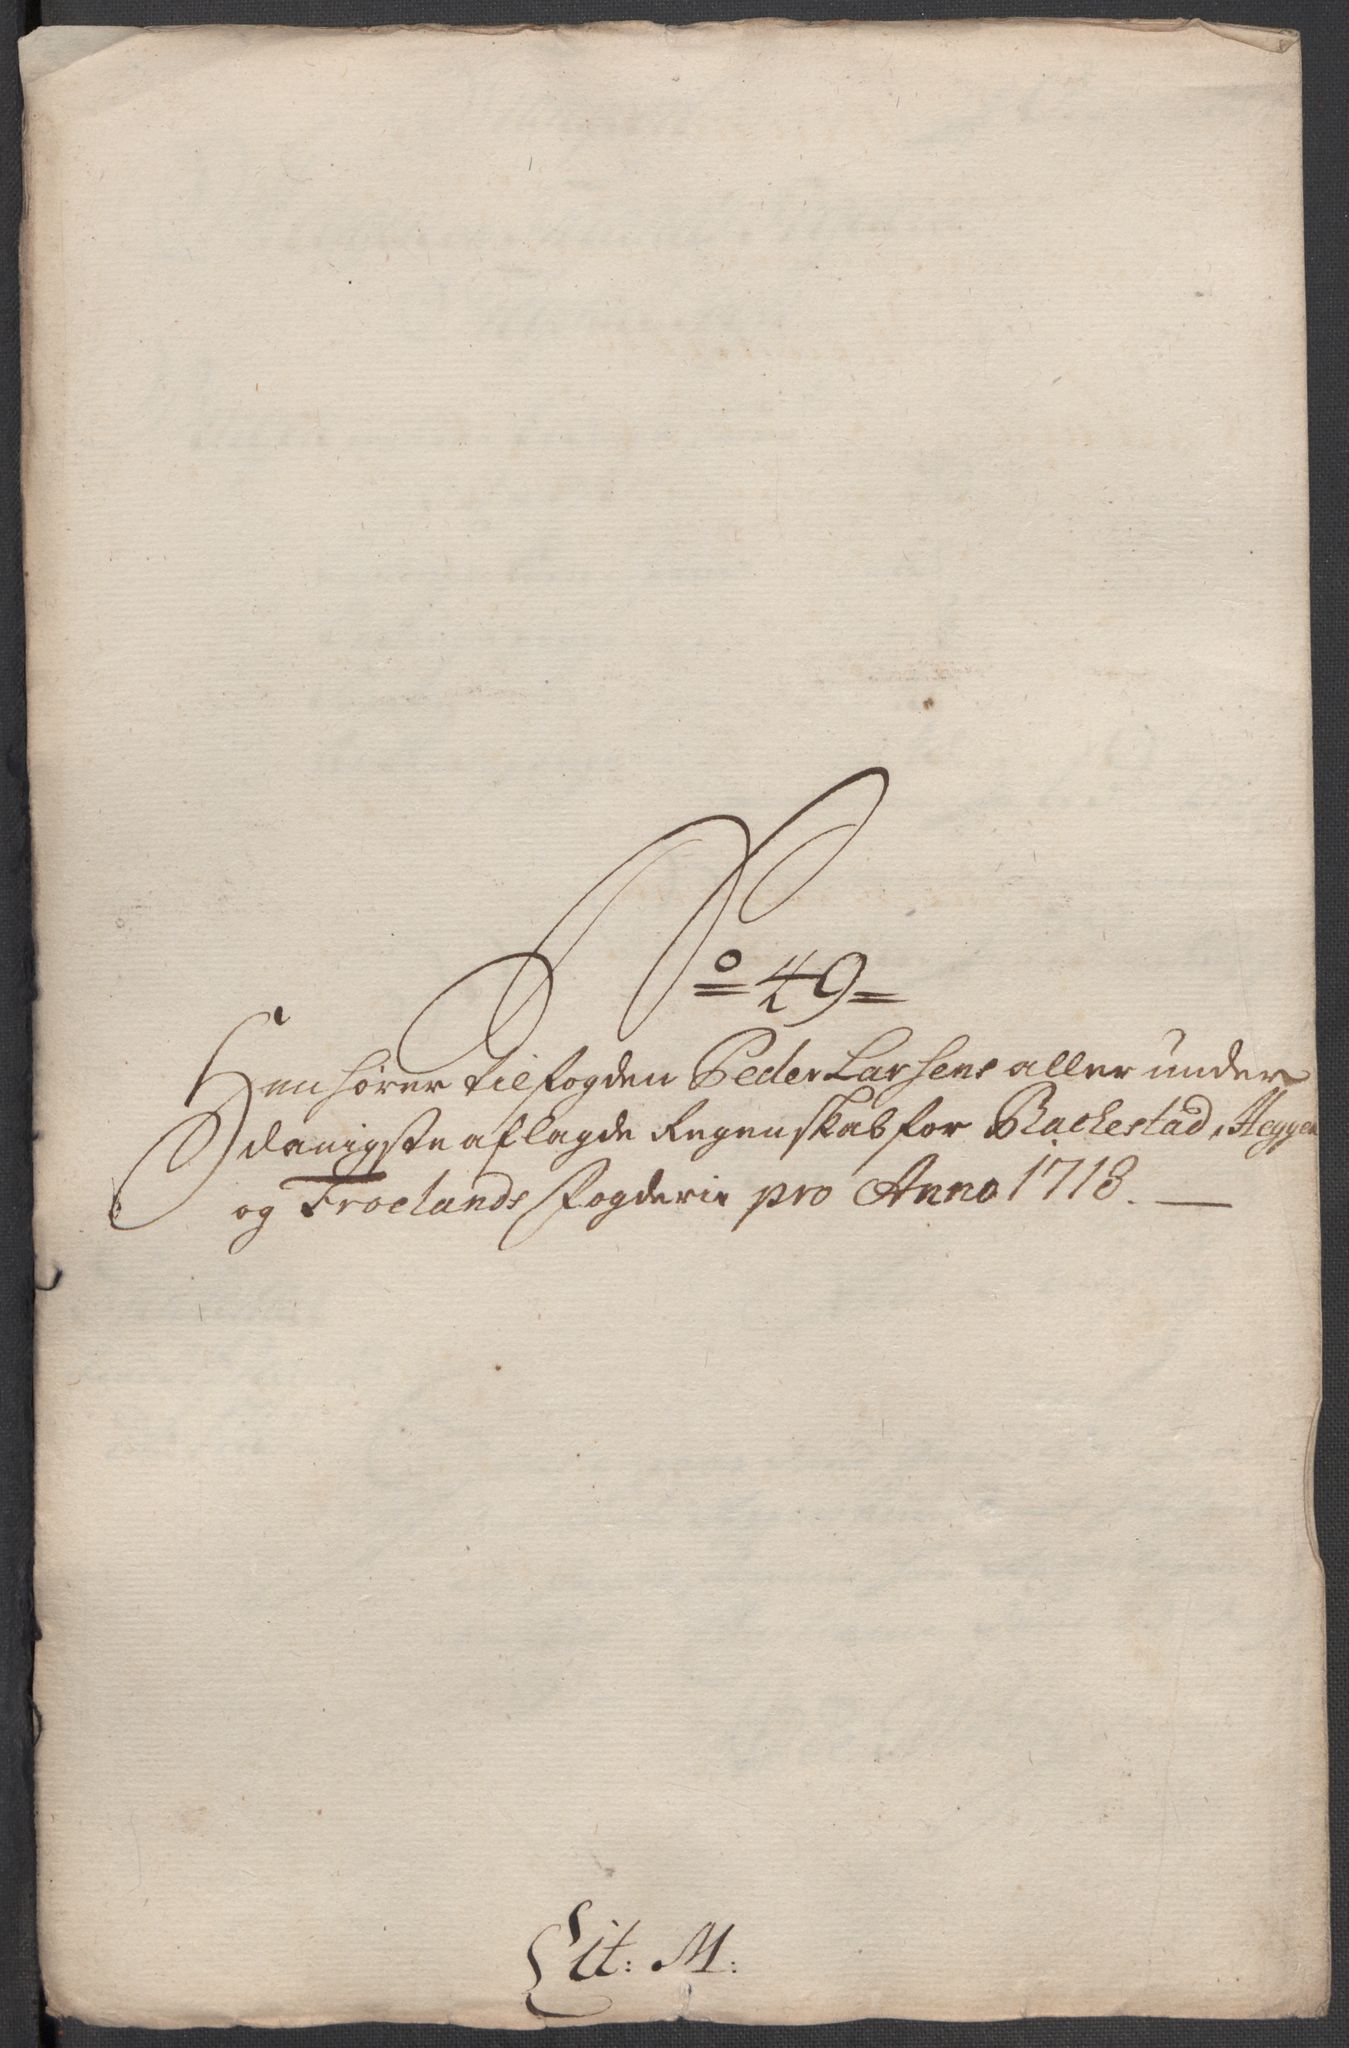 No 49
Henhører til fogden Peder Larsens aller under
danigste aflagde Regenskab for Rachestad, Heggen
og Froelands fogderie pro Anno 1718.
Lit: M: